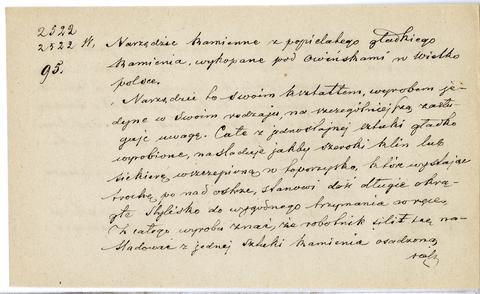 2522
2522 W.
95.
Narzędzie kamienne z popielatego gładkiego
kamienia, wykopane pod Owińskami w Wielko
polsce.
Narzędzie to swoim kształtem, wyrobem je-
dyne w swoim rodzaju, na szczególniejszą zasłu
guje uwagę. Całe z jednostajnej sztuki gładko
wyrobione, naśladuje jakby szeroki klin lub
siekierę, wszczepioną w toporzysko, które wystając
trochę po nad ostrze, stanowi dość długie okrą
głe stylisko do wygodnego trzymania w ręce.
Z całego wyrobu znać, że robotnik silił się na-
śladować z jednej sztuki kamienia osadzoną